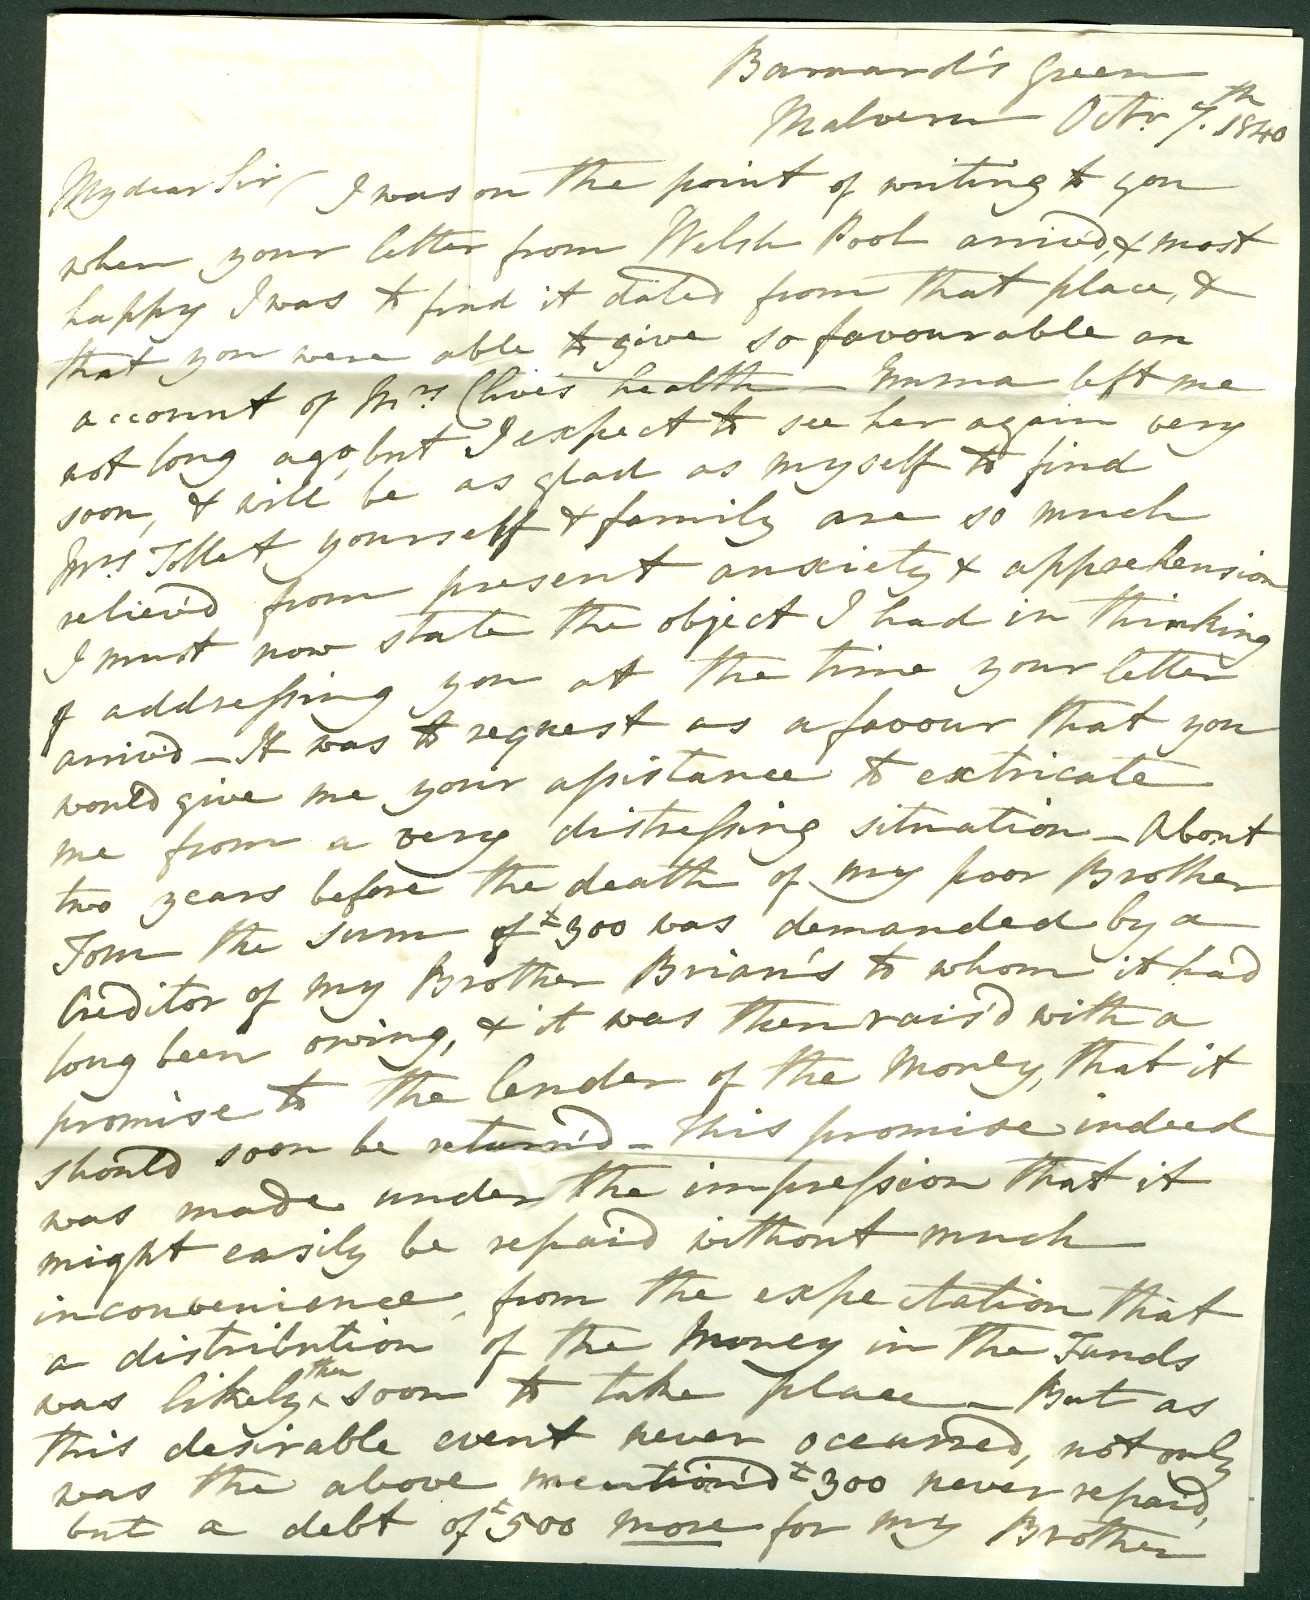 Barnard's Green
Malvern Octr. 7.th 1840
My dear Sir / I was on the point of writing to you
when your letter from Welsh Pool arriv'd, & most
happy I was to find it dated from that place, &
that you were able to give so favourable an
account of Mrs. Clive's health – Emma left me
not long ago, but I expect to see her again very
soon, & will be as glad as myself to find
Mrs. Tollet yourself & family are so much
reliev'd from present anxiety & apprehension
I must now state the object I had in thinking
of addressing you at the time your letter
arriv'd – It was to request as a favour that you
would give me your assistance to extricate
me from a very distressing situation – About
two years before the death of my poor Brother
Tom the sum of £300 was demanded by a
Creditor of my Brother Brian's to whom it had
long been owing, & it was then rais'd with a
promise to the lender of the Money, that it
should soon be return'd – this promise indeed
was made under the impression that it
might easily be repaid without much
inconvenience, from the expectation that
a distribution of the Money in the Funds
was likely then soon to take place – But as
this desirable event never occurred, not only
was the above mention'd £300 never repaid,
but a debt of £500 more for my Brother